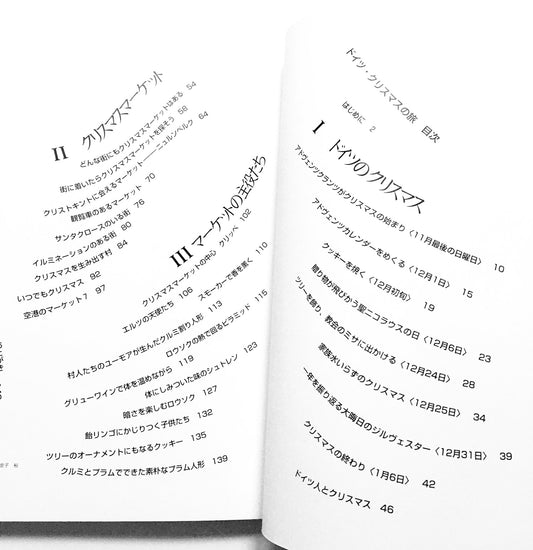 ドイツ・クリスマスの旅 目次
はじめに 2
I ドイツのクリスマス
アドヴェンツクランツがクリスマスの始まり〈11月最後の日曜日〉 10
アドヴェンツカレンダーをめくる〈12月1日〉 15
クッキーを焼く〈12月初旬〉 19
贈り物が飛びかう聖ニコラウスの日〈12月6日〉 23
ツリーを飾り、教会のミサに出かける〈12月24日〉 28
家族水いらずのクリスマス〈12月25日〉 34
一年を振り返る大晦日のジルヴェスター〈12月31日〉 39
クリスマスの終わり〈1月6日〉 42
ドイツ人とクリスマス 46
II クリスマスマーケット
どんな街にもクリスマスマーケットはある 54
街に着いたらクリスマスマーケットを探そう 58
クリストキントに会えるマーケット──ニュルンベルク 64
観覧車のあるマーケット 70
サンタクロースのいる街 76
イルミネーションのある街 80
クリスマスを生み出す村 84
いつでもクリスマス 92
空港のマーケット? 97
III マーケットの主役たち
クリスマスマーケットの中心 クリッペ 102
エルツの天使たち 106
スモーカーで香を薫く 110
村人たちのユーモアが生んだクルミ割り人形 113
ロウソクの熱で回るピラミッド 115
グリューワインで体を温めながら 119
体にしみついた味のシュトレン 123
暗さを楽しむロウソク 127
飴リンゴにかじりつく子供たち 132
ツリーのオーナメントにもなるクッキー 135
クルミとプラムでできた素朴なプラム人形 139